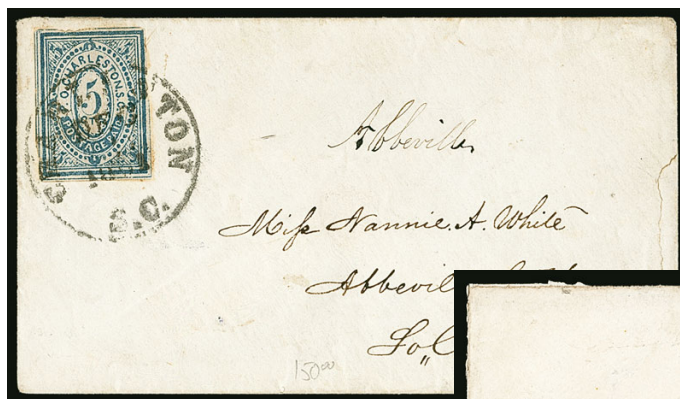 P.O. CHARLESTON, S.C.
5
POSTAGE PAID
CHARLESTON
S.C.
Abbeville
Miss Nannie. A. White
So"C
150⁰⁰